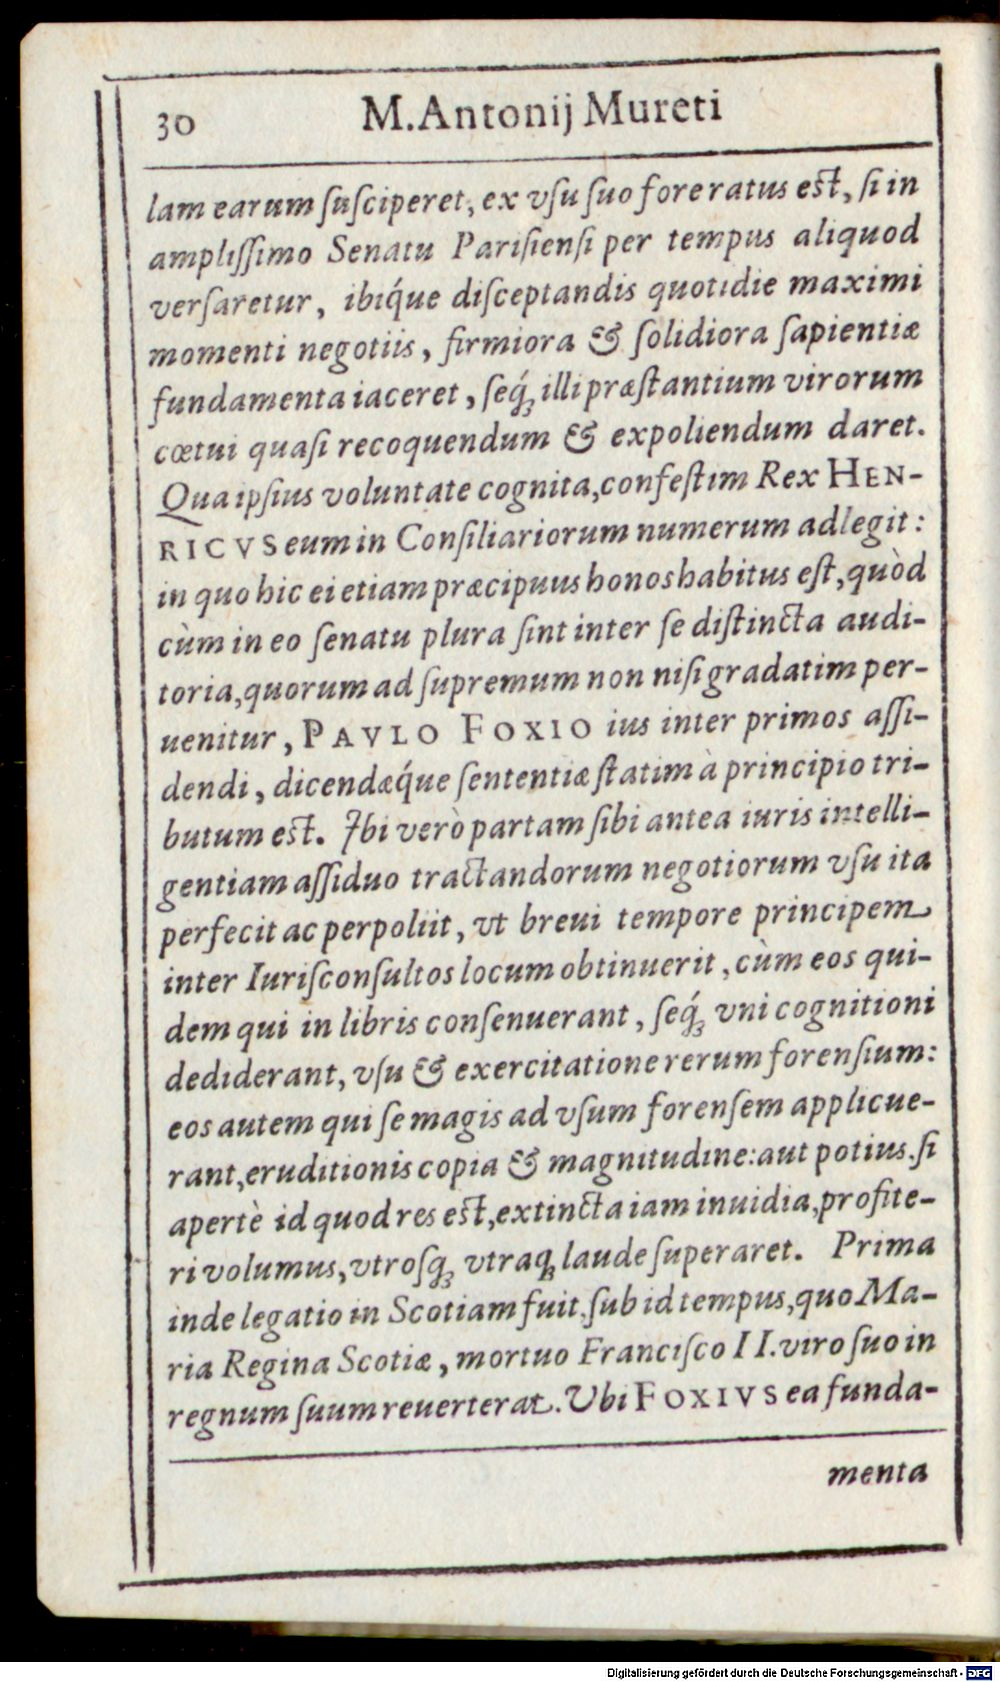 30 M. Antonij Mureti
lam earum ſuſciperet, ex vſu ſuo fore ratus eſt, ſi in
ampliſſimo Senatu Pariſienſi per tempus aliquod
verſaretur, ibiq́ue diſceptandis quotidie maximi
momenti negotiis, firmiora & ſolidiora ſapientiæ
fundamenta iaceret, ſeq́ꝫ illi præſtantium virorum
cœtui quaſi recoquendum & expoliendum daret.
Qua ipſius voluntate cognita, confeſtim Rex HEN-
RICVS eum in Conſiliariorum numerum adlegit:
in quo hic ei etiam præcipuus honos habitus eſt, quòd
cùm in eo ſenatu plura ſint inter ſe diſtincta audi-
toria, quorum ad ſupremum non niſi gradatim per-
uenitur, PAVLO FOXIO ius inter primos aſſi-
dendi, dicendæq́ue ſententiæ ſtatim à principio tri-
butum eſt. Ibi verò partam ſibi antea iuris intelli-
gentiam aſſiduo tractandorum negotiorum vſu ita
perfecit ac perpoliit, vt breui tempore principem
inter Iuriſconſultos locum obtinuerit, cùm eos qui-
dem qui in libris conſenuerant, ſeq́ꝫ vni cognitioni
dediderant, vſu & exercitatione rerum forenſium:
eos autem qui ſe magis ad vſum forenſem applicue-
rant, eruditionis copia & magnitudine: aut potius, ſi
apertè id quod res eſt, extincta iam inuidia, profite-
ri volumus, vtroſq́ꝫ vtraqꝫ laude ſuperaret. Prima
inde legatio in Scotiam fuit, ſub id tempus, quo Ma-
ria Regina Scotiæ, mortuo Franciſco II. viro ſuo in
regnum ſuum reuerterat. Vbi FOXIVS ea funda-
menta
Digitalisierung gefördert durch die Deutsche Forschungsgemeinschaft - DFG